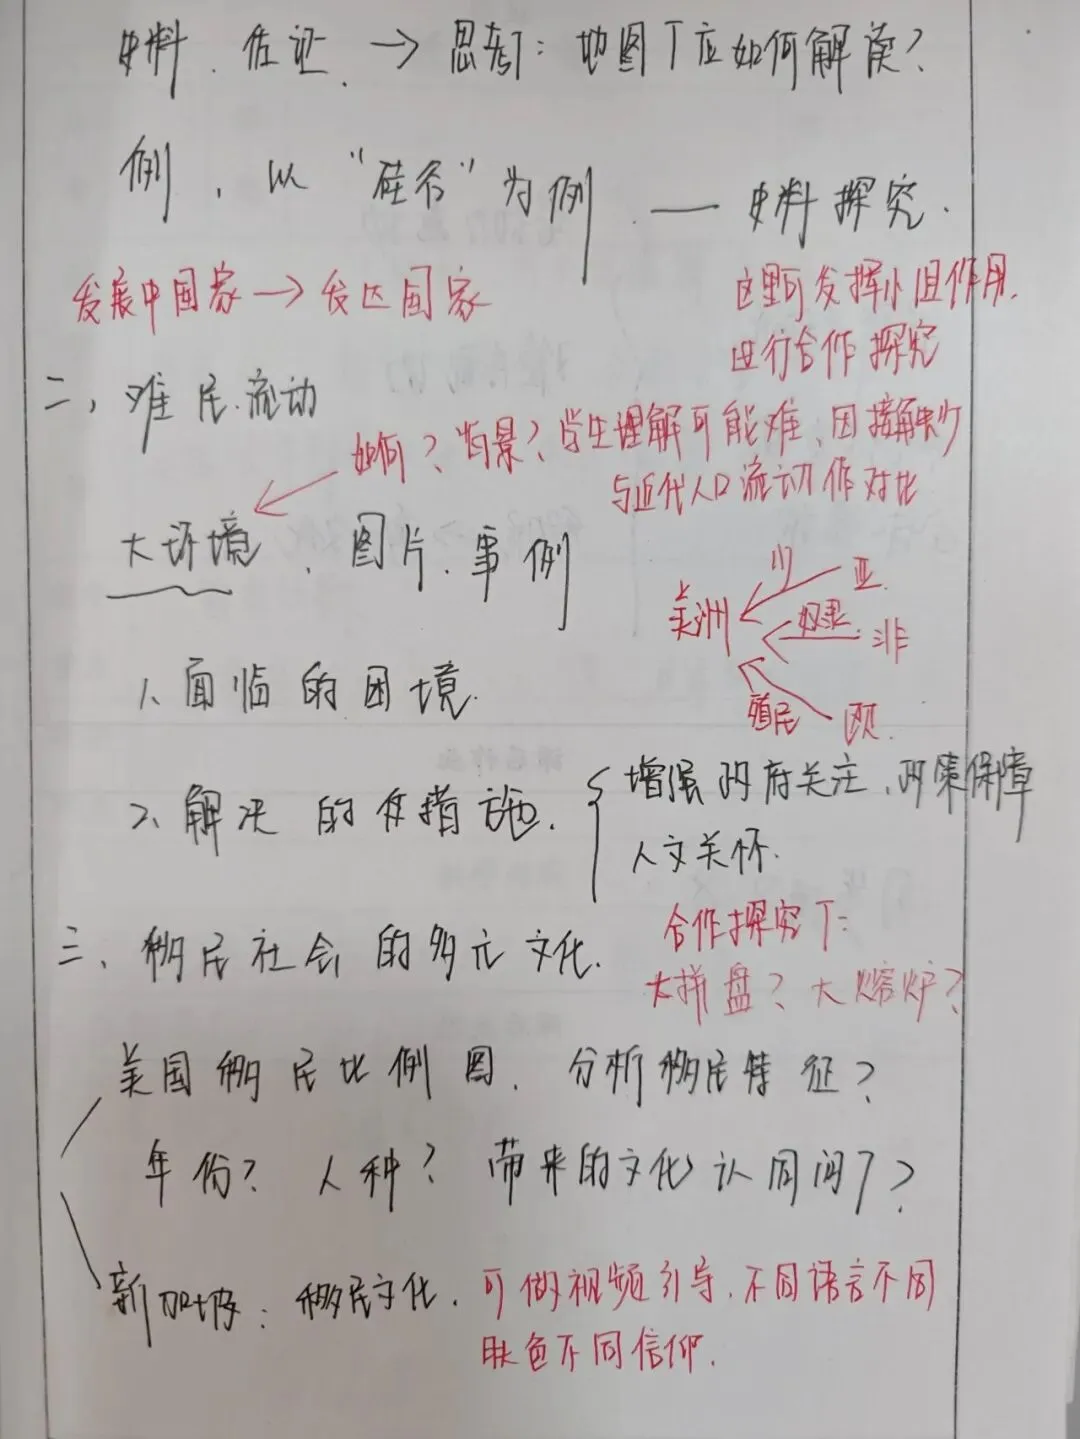 史料、佐证、→思考：地图下应如何解读？
例，以“硅谷”为例 —— 史料探究.
发展中国家→发达国家
这里可发挥小组作用,
进行合作探究
二，难民流动
如何？背景？学生理解可能难、因接触少
与近代人口流动作对比
大环境、图片、事例
美洲
亚
奴隶 非
殖民 欧
1、面临的困境.
2、解决的措施.
增强政府关注、政策保障
人文关怀.
三、移民社会的多元文化.
合作探究下：
大拼盘？大熔炉？
美国移民比例图. 分析移民特征？
年份？人种？带来的文化认同问？
新加坡：移民文化.
可做视频引导.不同语言不同
肤色不同信仰.